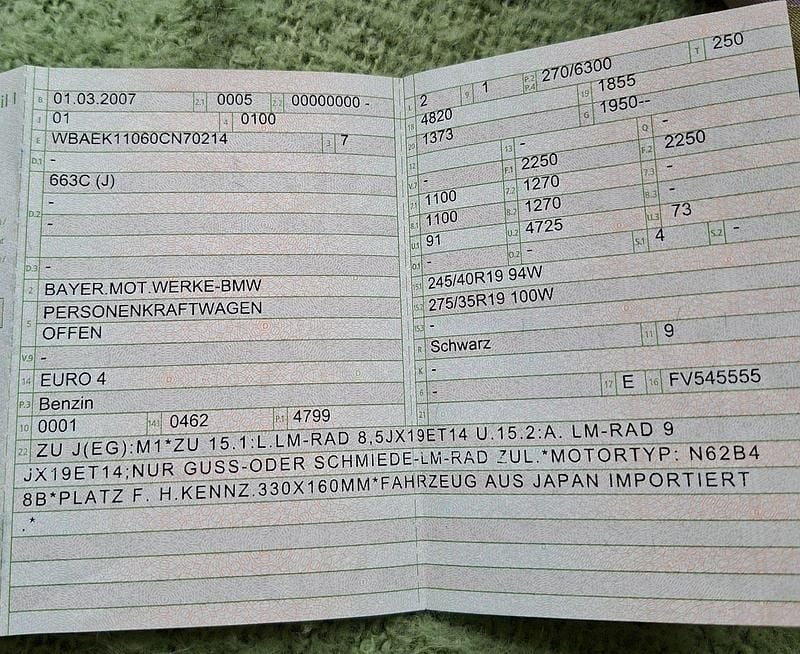 B 01.03.2007 2.1 0005 2.2 00000000 -
J 01 4 0100
E WBAEK11060CN70214 3 7
D.1 -
663C (J)
-
D.2 -
D.3 -
2 BAYER.MOT.WERKE-BMW
5 PERSONENKRAFTWAGEN
OFFEN
V.9 -
14 EURO 4
P.3 Benzin
10 0001 14.1 0462 P.1 4799
L 2 9 1 P.2 P.4 270/6300 T 250
18 4820 19 1855
20 1373 G 1950--
12 - 13 - Q -
V.7 - F.1 2250 F.2 2250
7.1 1100 7.2 1270 7.3 -
8.1 1100 8.2 1270 8.3 -
U.1 91 U.2 4725 U.3 73
O.1 - O.2 - S.1 4 S.2 -
15.1 245/40R19 94W
15.2 275/35R19 100W
15.3 -
R Schwarz 11 9
K -
6 - 17 E 16 FV545555
21
22 ZU J(EG):M1*ZU 15.1:L.LM-RAD 8,5JX19ET14 U.15.2:A. LM-RAD 9
JX19ET14;NUR GUSS-ODER SCHMIEDE-LM-RAD ZUL.*MOTORTYP: N62B4
8B*PLATZ F. H.KENNZ.330X160MM*FAHRZEUG AUS JAPAN IMPORTIERT
.*